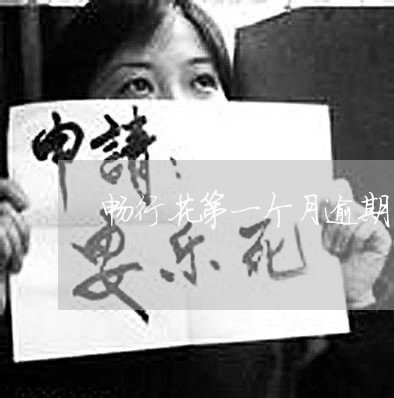 申請：
畅行花第一个月逾期
安乐死